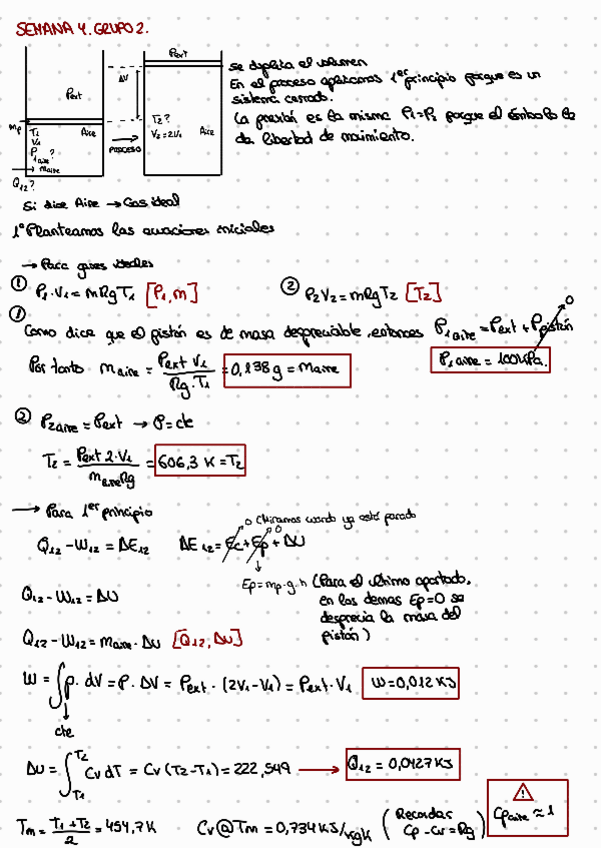 SEMANA 4. GRUPO 2.
Pext
Pext
ΔV
mp
T1
V1
P1 aire?
Aire
maire
Q12?
PROCESO
T2?
V2=2V1
Aire
Se duplica el volumen
En el proceso aplicamos 1er principio porque es un
sistema cerrado.
La presión es la misma P1=P2 porque el émbolo le
da libertad de movimiento.
Si dice Aire → Gas ideal
1º Planteamos las ecuaciones iniciales
→ Para gases ideales
① P1·V1=mRgT1 [P1,m]
② P2V2=mRgT2 [T2]
①
Como dice que el pistón es de masa despreciable, entonces P1aire=Pext+Ppistón 0
Por tanto maire = Pext V1 / Rg·T1 = 0,138g=maire
P1aire=100kPa.
② P2aire=Pext → P=cte
T2 = Pext 2·V1 / maireRg = 606,3 K=T2
→ Para 1er principio
0 0 cuando ya está parado
Q12-W12=ΔE12 ΔE12=Ec+Ep+ΔU
Ep=mp·g·h (Para el último apartado,
en los demás Ep=0 se
desprecia la masa del
pistón)
Q12-W12=ΔU
Q12-W12=maire·Δu [Q12,Δu]
W=∫p·dV=P·ΔV=Pext·(2V1-V1)=Pext·V1 W=0,012 KJ
cte
Δu=∫T1 T2 Cv dT=Cv(T2-T1)=222,549 → Q12=0,0427 KJ
Tm = T1+T2 / 2 = 454,7K Cv@Tm=0,734 KJ/kgK (Recordar Cp-Cv=Rg)
⚠ Cpaire≈1